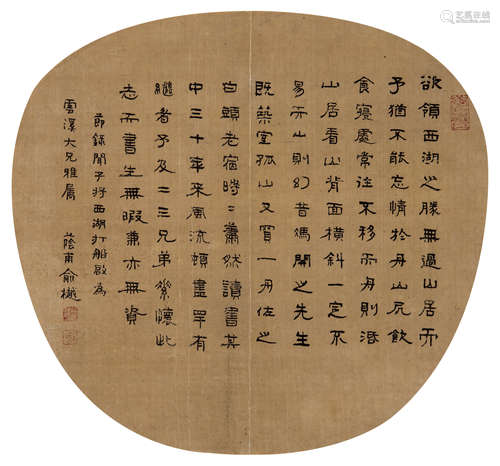 欲領西湖之勝無過山居而
予猶不能忘情於舟山凥飲
食寢處常住不移而舟則活
山居看山背面橫斜一定不
易而山則幻昔馮開之先生
既築室孤山又買一舟佐之
白頭老宿時二蕭然讀書其
中三十年來風流頓盡罕有
繼者予及二三兄弟縈懷此
志而書生無暇兼亦無資
節錄聞子將西湖打船啟為
雲溪大兄雅屬 蔭甫俞樾